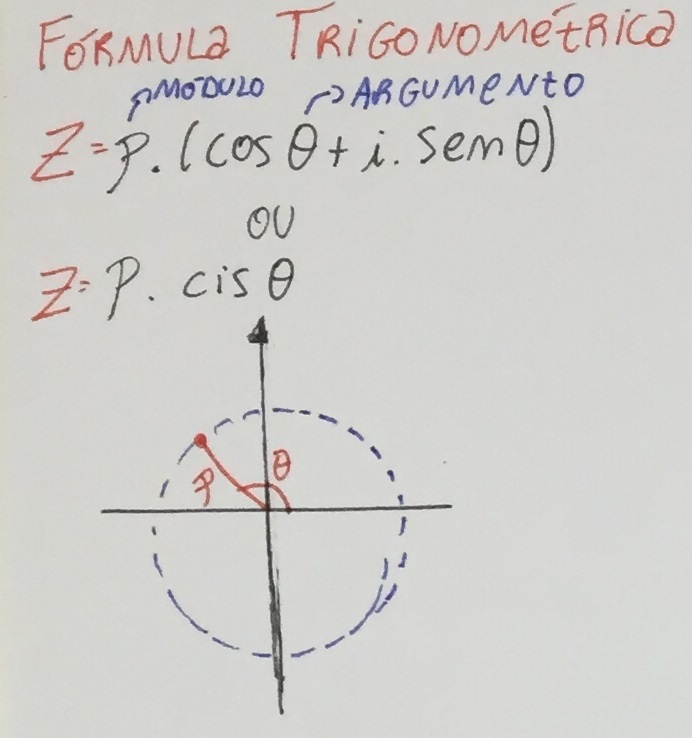 FÓRMULA TRIGONOMÉTRICA
MÓDULO ARGUMENTO
Z=ρ.(cos θ + i. sen θ)
OU
Z=ρ. cis θ
θ
ρ